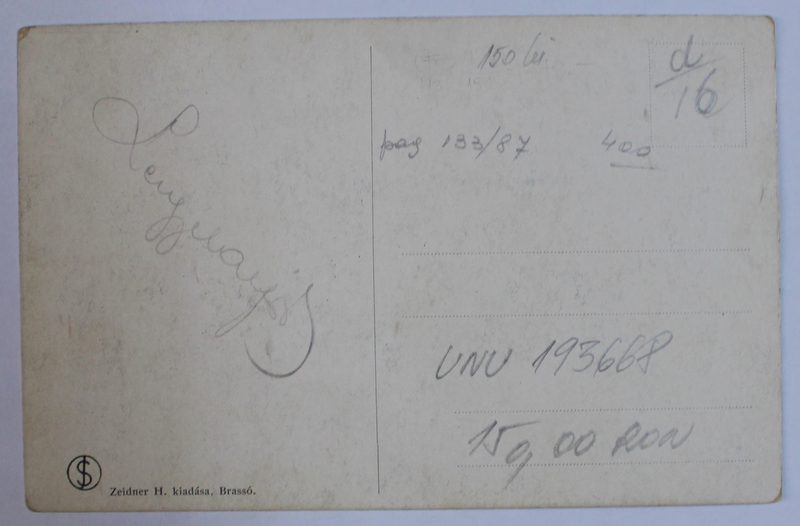 150 lei
d/16
pag 133/87 400
UNU 193668
150,00 RON
Zeidner H. kiadása, Brassó.